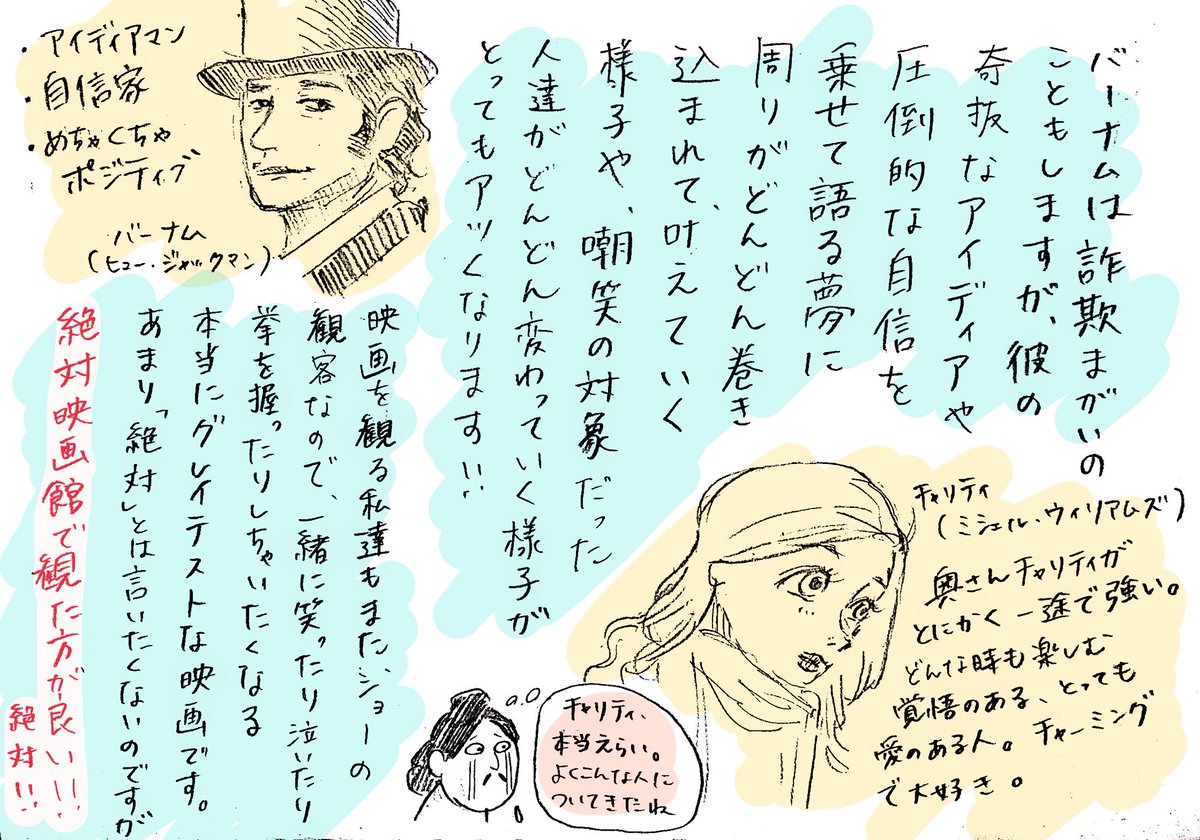 ・アイディアマン
・自信家
・めちゃくちゃ
ポジティブ
バーナム
(ヒュー・ジャックマン)
バーナムは詐欺まがいの
こともしますが、彼の
奇抜なアイディアや
圧倒的な自信を
乗せて語る夢に
周りがどんどん巻き
込まれて、叶えていく
様子や、嘲笑の対象だった
人達がどんどん変わっていく様子が
とってもアツくなります!!
チャリティ
(ミシェル・ウィリアムズ)
奥さんチャリティが
とにかく一途で強い。
どんな時も楽しむ
覚悟のある、とっても
愛のある人。チャーミング
で大好き。
チャリティ、
本当えらい。
よくこんな人に
ついてきたね
映画を観る私達もまた、ショーの
観客なので、一緒に笑ったり泣いたり
拳を握ったりしちゃいたくなる
本当にグレイテストな映画です。
あまり「絶対」とは言いたくないのですが
絶対映画館で観た方が良い!!
絶対!!